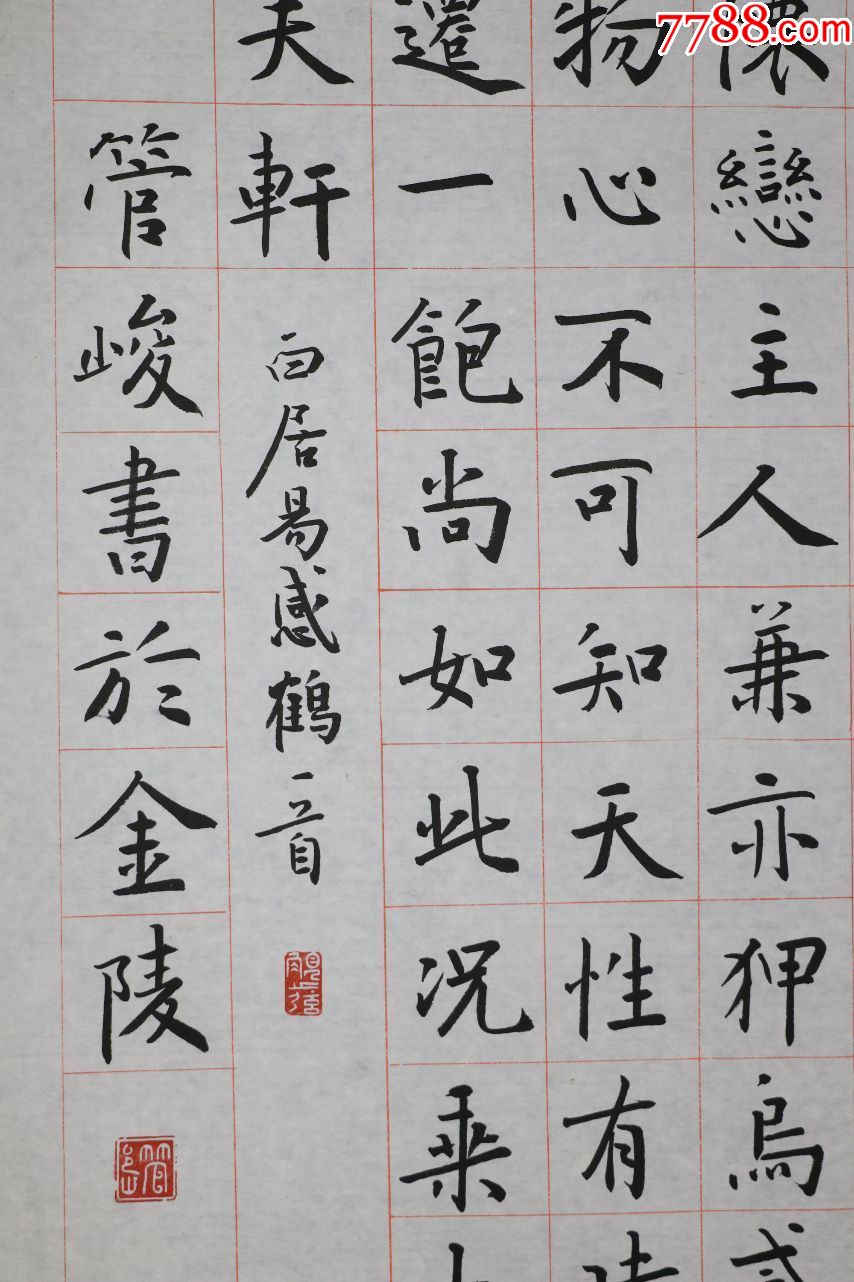 7788.com
懷戀主人兼亦狎烏
物心不可知天性有
遷一飽尚如此況乘
夫軒
白居易感鶴一首
管峻書於金陵